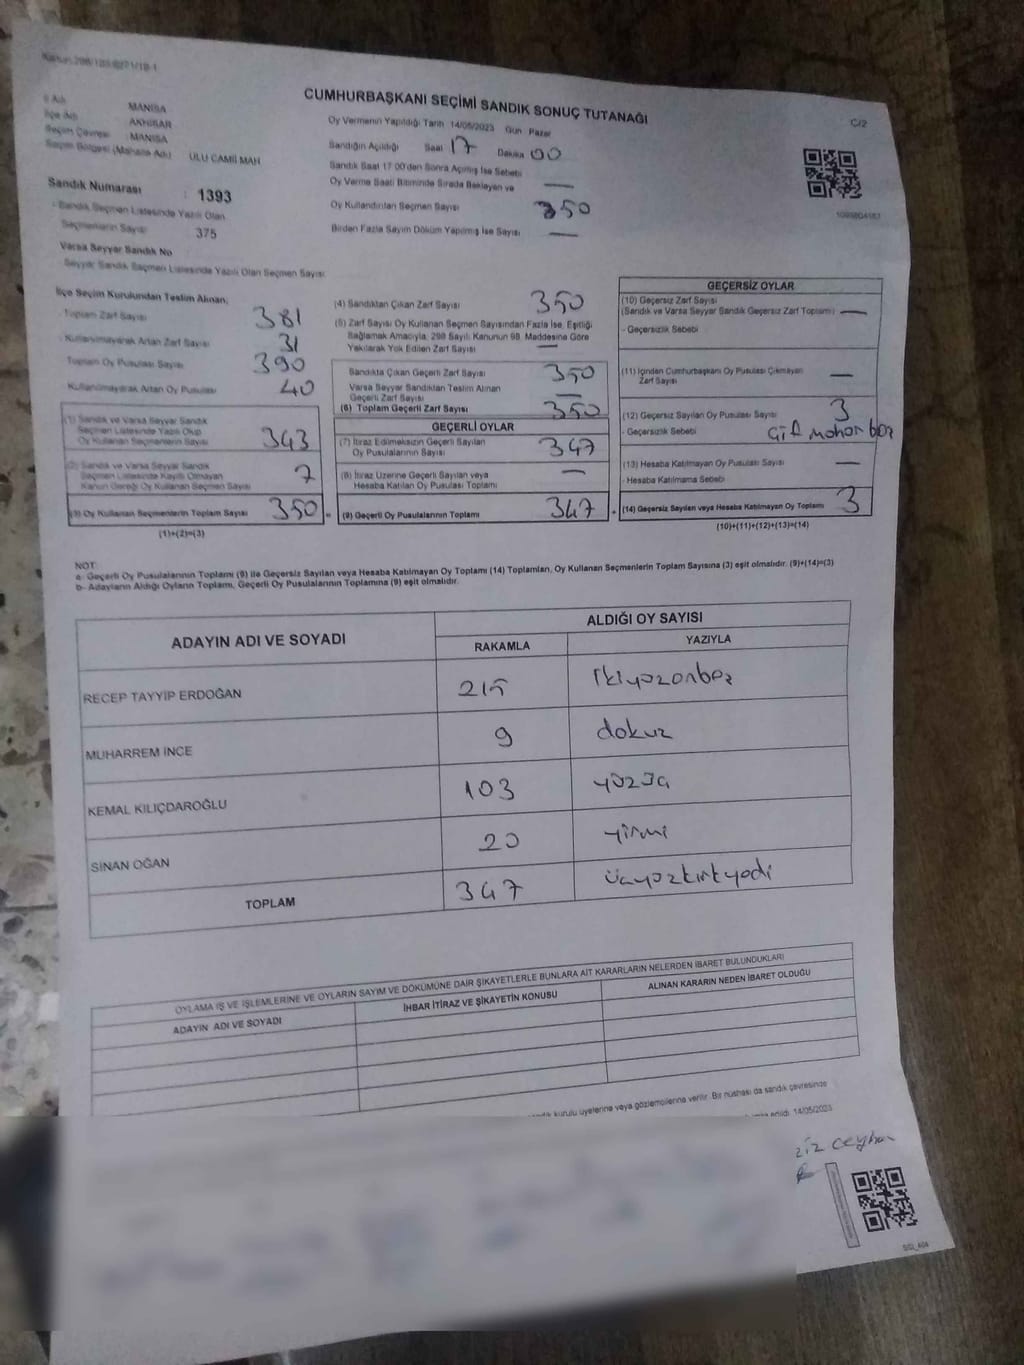 CUMHURBAŞKANI SEÇİMİ SANDIK SONUÇ TUTANAĞI
C/2
İl Adı MANİSA
İlçe Adı AKHİSAR
Seçim Çevresi : MANİSA
Seçim Bölgesi (Mahalle Adı) ULU CAMİİ MAH
Oy Vermenin Yapıldığı Tarih 14/05/2023 Gün Pazar
Sandığın Açıldığı Saat 17 Dakika 00
Sandık Saat 17:00'den Sonra Açılmış İse Sebebi
Oy Verme Saati Bitiminde Sırada Bekleyen ve
Oy Kullandırılan Seçmen Sayısı 350
Birden Fazla Sayım Döküm Yapılmış İse Sayısı —
Sandık Numarası : 1393
- Sandık Seçmen Listesinde Yazılı Olan
Seçmenlerin Sayısı 375
Varsa Seyyar Sandık No
- Seyyar Sandık Seçmen Listesinde Yazılı Olan Seçmen Sayısı:
İlçe Seçim Kurulundan Teslim Alınan,
- Toplam Zarf Sayısı 381
- Kullanılmayarak Artan Zarf Sayısı 31
Toplam Oy Pusulası Sayısı 390
Kullanılmayarak Artan Oy Pusulası 40
(1) Sandık ve Varsa Seyyar Sandık
Seçmen Listesinde Yazılı Olup
Oy Kullanan Seçmenlerin Sayısı 343
(2) Sandık ve Varsa Seyyar Sandık
Seçmen Listesinde Kayıtlı Olmayan
Kanun Gereği Oy Kullanan Seçmen Sayısı 7
(3) Oy Kullanan Seçmenlerin Toplam Sayısı 350
(1)+(2)=(3)
(4) Sandıktan Çıkan Zarf Sayısı 350
(5) Zarf Sayısı Oy Kullanan Seçmen Sayısından Fazla İse, Eşitliği
Sağlamak Amacıyla; 298 Sayılı Kanunun 98. Maddesine Göre
Yakılarak Yok Edilen Zarf Sayısı —
Sandıkta Çıkan Geçerli Zarf Sayısı 350
Varsa Seyyar Sandıktan Teslim Alınan
Geçerli Zarf Sayısı —
(6) Toplam Geçerli Zarf Sayısı 350
GEÇERLİ OYLAR
(7) İtiraz Edilmeksizin Geçerli Sayılan
Oy Pusulalarının Sayısı 347
(8) İtiraz Üzerine Geçerli Sayılan veya
Hesaba Katılan Oy Pusulası Toplamı —
(9) Geçerli Oy Pusulalarının Toplamı 347
GEÇERSİZ OYLAR
(10) Geçersiz Zarf Sayısı
(Sandık ve Varsa Seyyar Sandık Geçersiz Zarf Toplamı) —
- Geçersizlik Sebebi
(11) İçinden Cumhurbaşkanı Oy Pusulası Çıkmayan
Zarf Sayısı —
(12) Geçersiz Sayılan Oy Pusulası Sayısı 3
- Geçersizlik Sebebi
(13) Hesaba Katılmayan Oy Pusulası Sayısı —
- Hesaba Katılmama Sebebi
(14) Geçersiz Sayılan veya Hesaba Katılmayan Oy Toplamı 3
(10)+(11)+(12)+(13)=(14)
NOT:
a- Geçerli Oy Pusulalarının Toplamı (9) ile Geçersiz Sayılan veya Hesaba Katılmayan Oy Toplamı (14) Toplamları, Oy Kullanan Seçmenlerin Toplam Sayısına (3) eşit olmalıdır. (9)+(14)=(3)
b- Adayların Aldığı Oyların Toplamı, Geçerli Oy Pusulalarının Toplamına (9) eşit olmalıdır.
ADAYIN ADI VE SOYADI
ALDIĞI OY SAYISI
RAKAMLA YAZIYLA
RECEP TAYYİP ERDOĞAN 215 ikiyüzonbeş
MUHARREM İNCE 9 dokuz
KEMAL KILIÇDAROĞLU 103 yüzüç
SİNAN OĞAN 20 yirmi
TOPLAM 347 üçyüzkırkyedi
OYLAMA İŞ VE İŞLEMLERİNE VE OYLARIN SAYIM VE DÖKÜMÜNE DAİR ŞİKAYETLERLE BUNLARA AİT KARARLARIN NELERDEN İBARET BULUNDUKLARI
ADAYIN ADI VE SOYADI İHBAR İTİRAZ VE ŞİKAYETİN KONUSU ALINAN KARARIN NEDEN İBARET OLDUĞU
kurulu üyelerine veya gözlemcilerine verilir. Bir nüshası da sandık çevresinde
14/05/2023
ceyhan